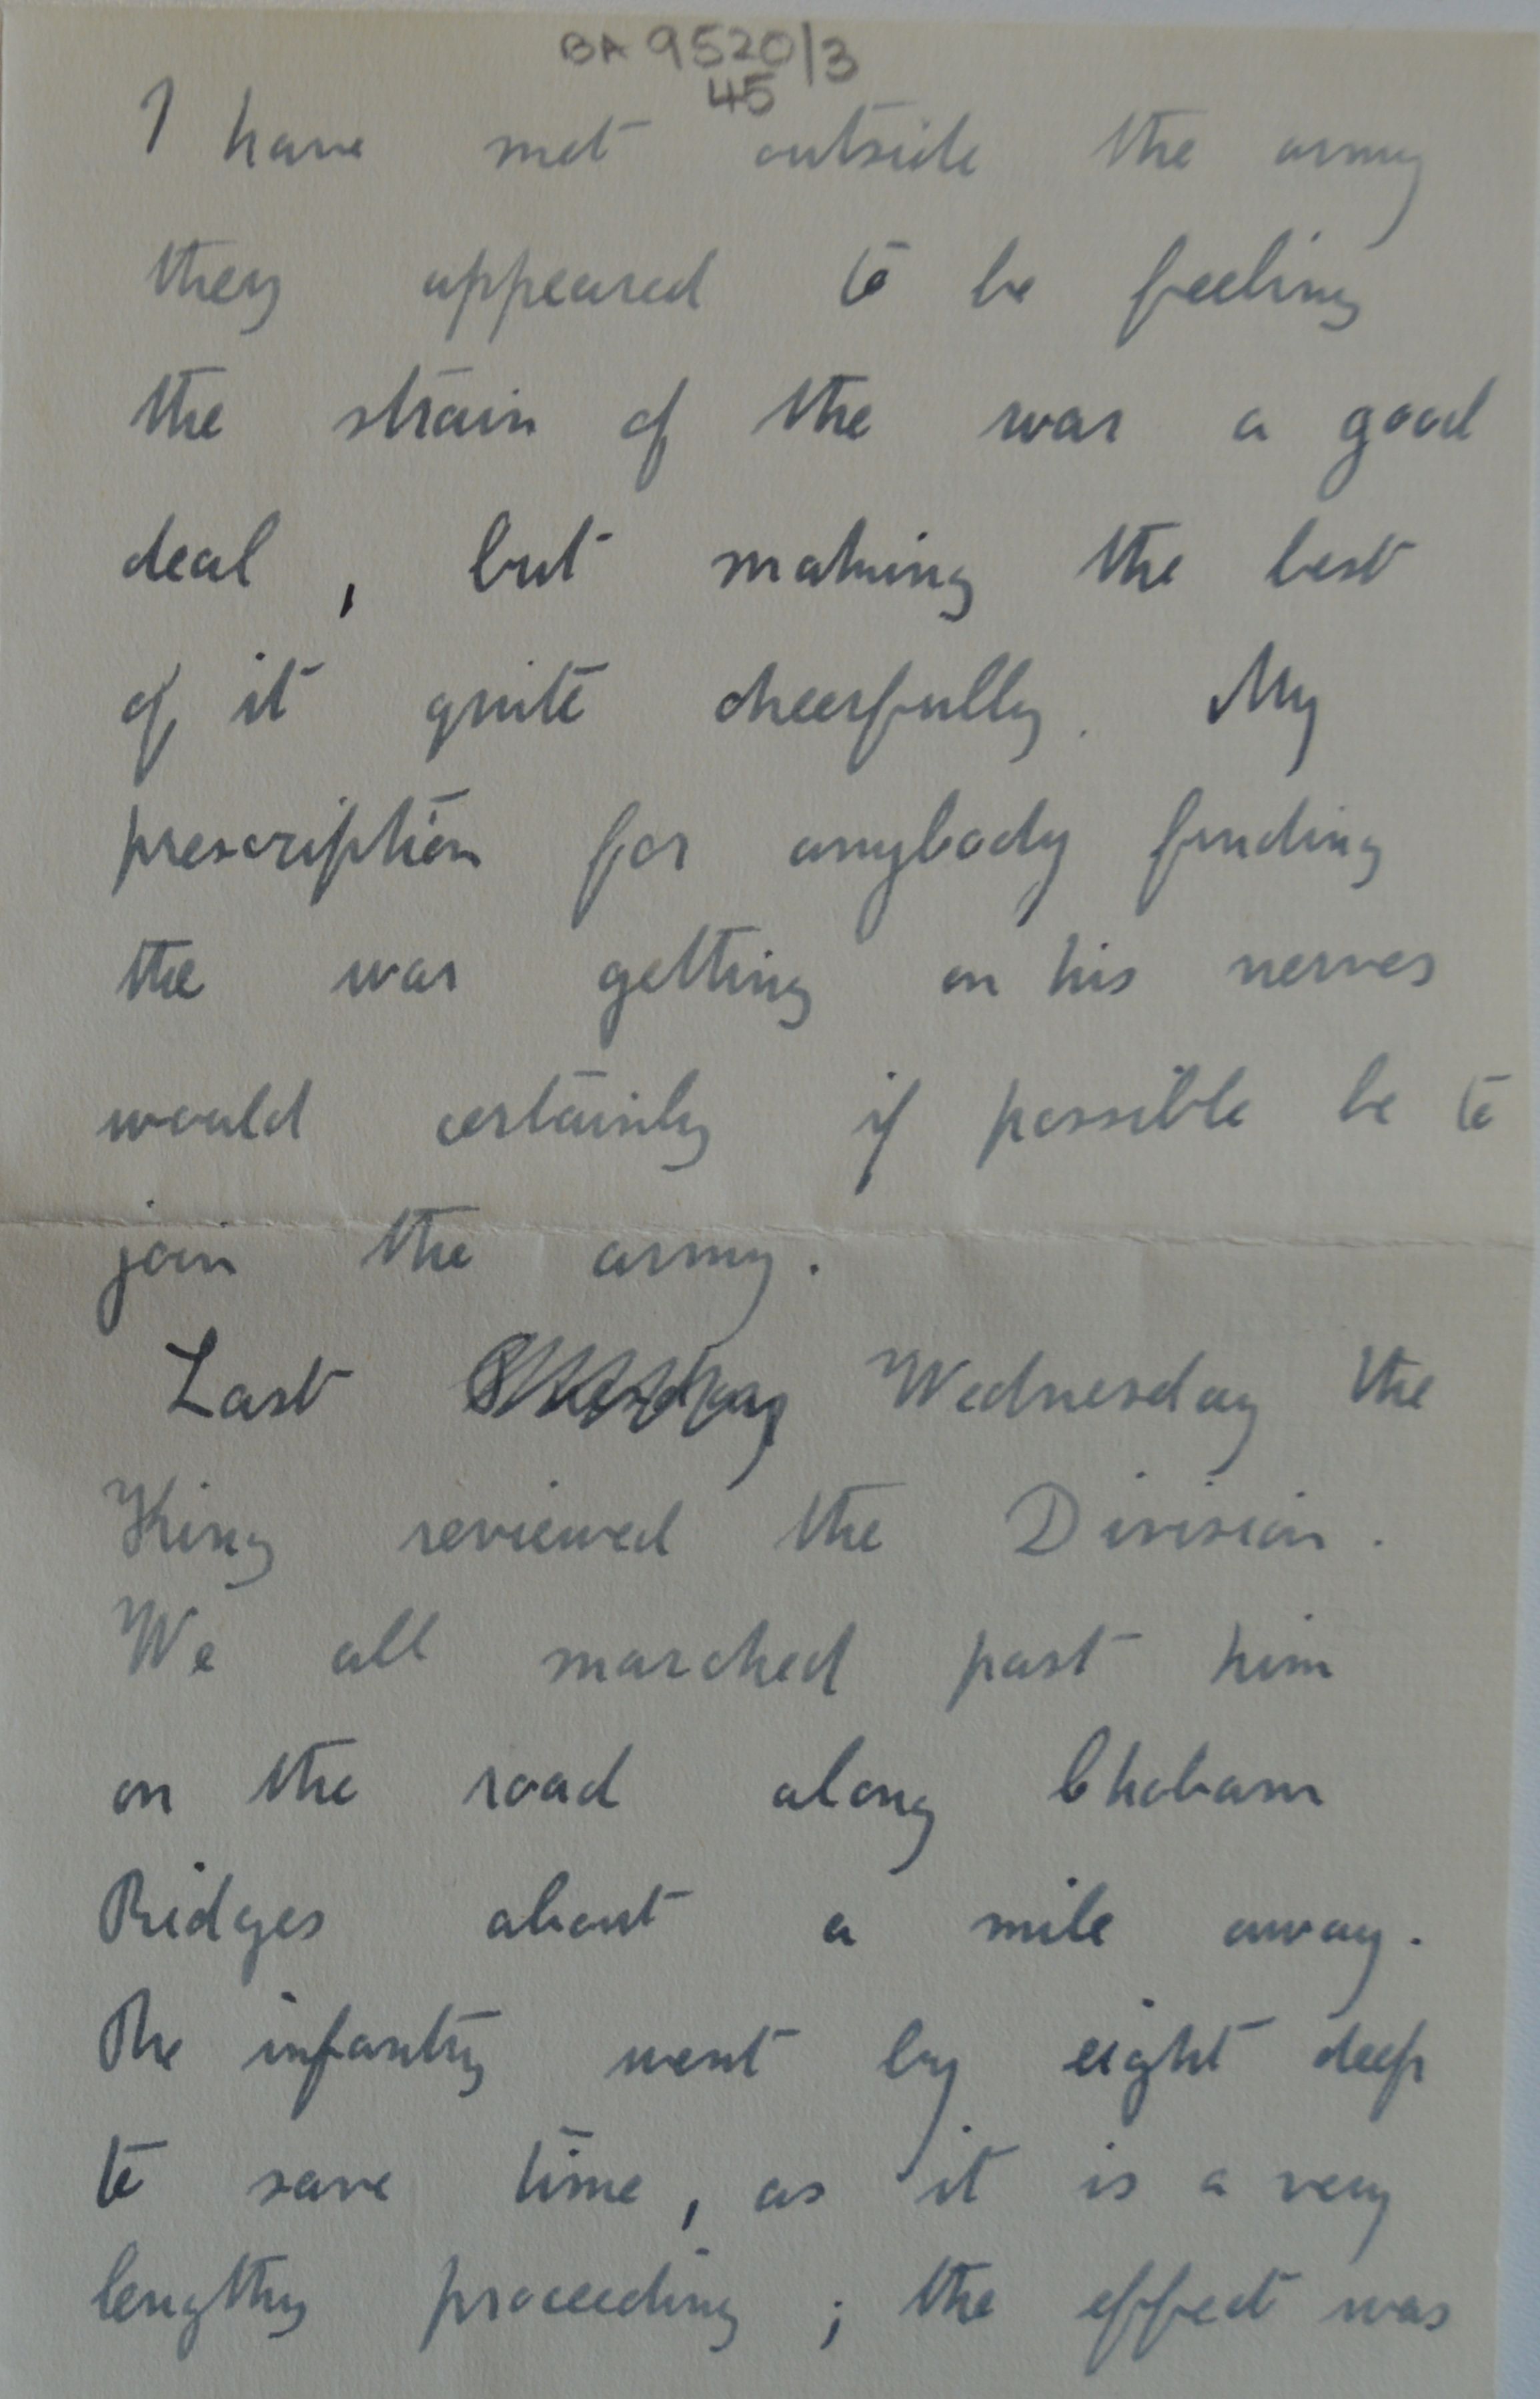 BA 9520/3
45
I have met outside the army
they appeared to be feeling
the strain of the war a good
deal, but making the best
of it quite cheerfully. My
prescription for anybody finding
the war getting on his nerves
would certainly if possible be to
join the army.
Last Wednesday the
King reviewed the Division.
We all marched past him
on the road along Chobam
Ridges about a mile away.
The infantry went by eight deep
to save time, as it is a very
lengthy proceeding; the effect was